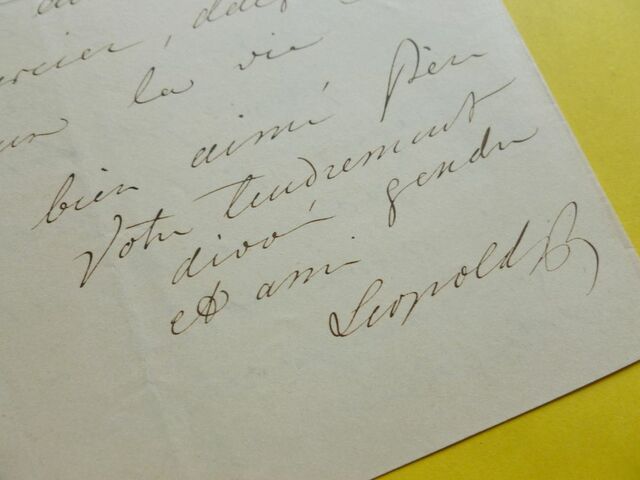 la vie
bien aimé Père
Votre tendrement
dévoué gendre
et ami
Leopold